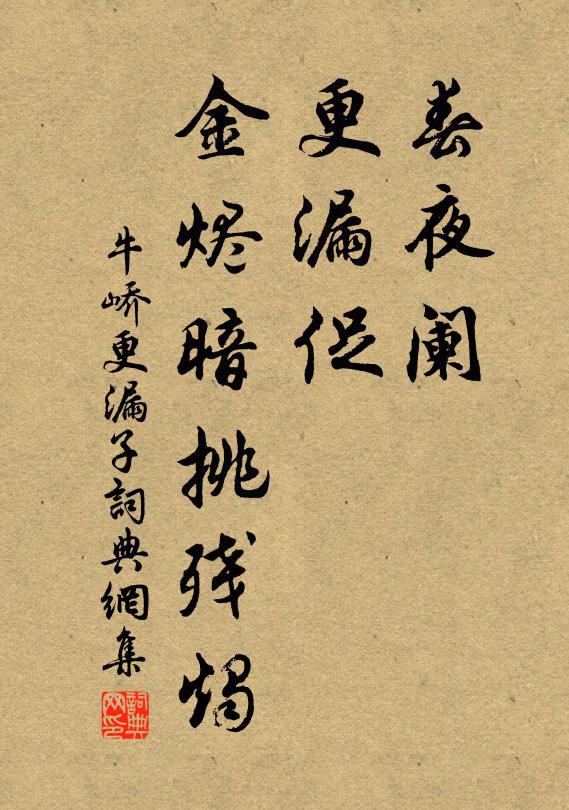 春夜阑
更漏促
金烬暗挑残烛
牛峤更漏子詞典網集
詞典网印